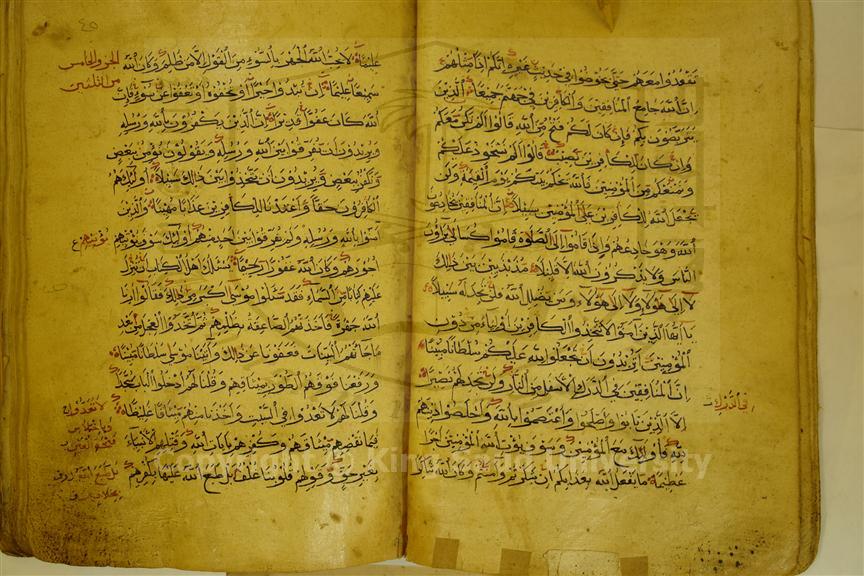 تقعدوا معهم حتى يخوضوا في حديث غيره انكم اذا مثلهم
ان الله جامع المنافقين والكافرين في جهنم جميعا الذين
يتربصون بكم فان كان لكم فتح من الله قالوا الم نكن معكم
وان كان للكافرين نصيب قالوا الم نستحوذ عليكم
ونمنعكم من المؤمنين فالله يحكم بينكم يوم القيمة ولن
يجعل الله للكافرين على المؤمنين سبيلا ان المنافقين يخادعون
الله وهو خادعهم واذا قاموا الى الصلوة قاموا كسالى يراؤن
الناس ولا يذكرون الله الا قليلا مذبذبين بين ذالك
لا الى هؤلاء ولا الى هؤلاء ومن يضلل الله فلن تجد له سبيلا
يا ايها الذين امنوا لا تتخذوا الكافرين اولياء من دون
المؤمنين اتريدون ان تجعلوا لله عليكم سلطانا مبينا
ان المنافقين في الدرك الاسفل من النار ولن تجد لهم نصيرا
الا الذين تابوا واصلحوا واعتصموا بالله واخلصوا دينهم
لله فاولئك مع المؤمنين وسوف يؤت الله المؤمنين اجرا
عظيما ما يفعل الله بعذابكم ان شكرتم وامنتم وكان الله شاكرا
٤٥
الجزو الخامس
من الثلثين
عليما لا يحب الله الجهر بالسوء من القول الا من ظلم وكان الله
سميعا عليما ان تبدوا خيرا او تخفوه او تعفوا عن سوء فان
الله كان عفوا قديرا ان الذين يكفرون بالله ورسله
ويريدون ان يفرقوا بين الله ورسله ويقولون نؤمن ببعض
ونكفر ببعض ويريدون ان يتخذوا بين ذالك سبيلا اولئك هم
الكافرون حقا واعتدنا للكافرين عذابا مهينا والذين
امنوا بالله ورسله ولم يفرقوا بين احد منهم اولئك سوف نؤتيهم
نؤتيهم ع
اجورهم وكان الله غفورا رحيما يسئلك اهل الكتاب ان تنزل
عليهم كتابا من السماء فقد سئلوا موسى اكبر من ذالك فقالوا ارنا
الله جهرة فاخذتهم الصاعقة بظلمهم ثم اتخذوا العجل من بعد
ما جاءتهم البينات فعفونا عن ذالك واتينا موسى سلطانا مبينا
ورفعنا فوقهم الطور بميثاقهم وقلنا لهم ادخلوا الباب سجدا
وقلنا لهم لا تعدوا في السبت واخذنا منهم ميثاقا غليظا
فبما نقضهم ميثاقهم وكفرهم بايات الله وقتلهم الانبياء
بغير حق وقولهم قلوبنا غلف بل طبع الله عليها بكفرهم
Copyright © King Saud University